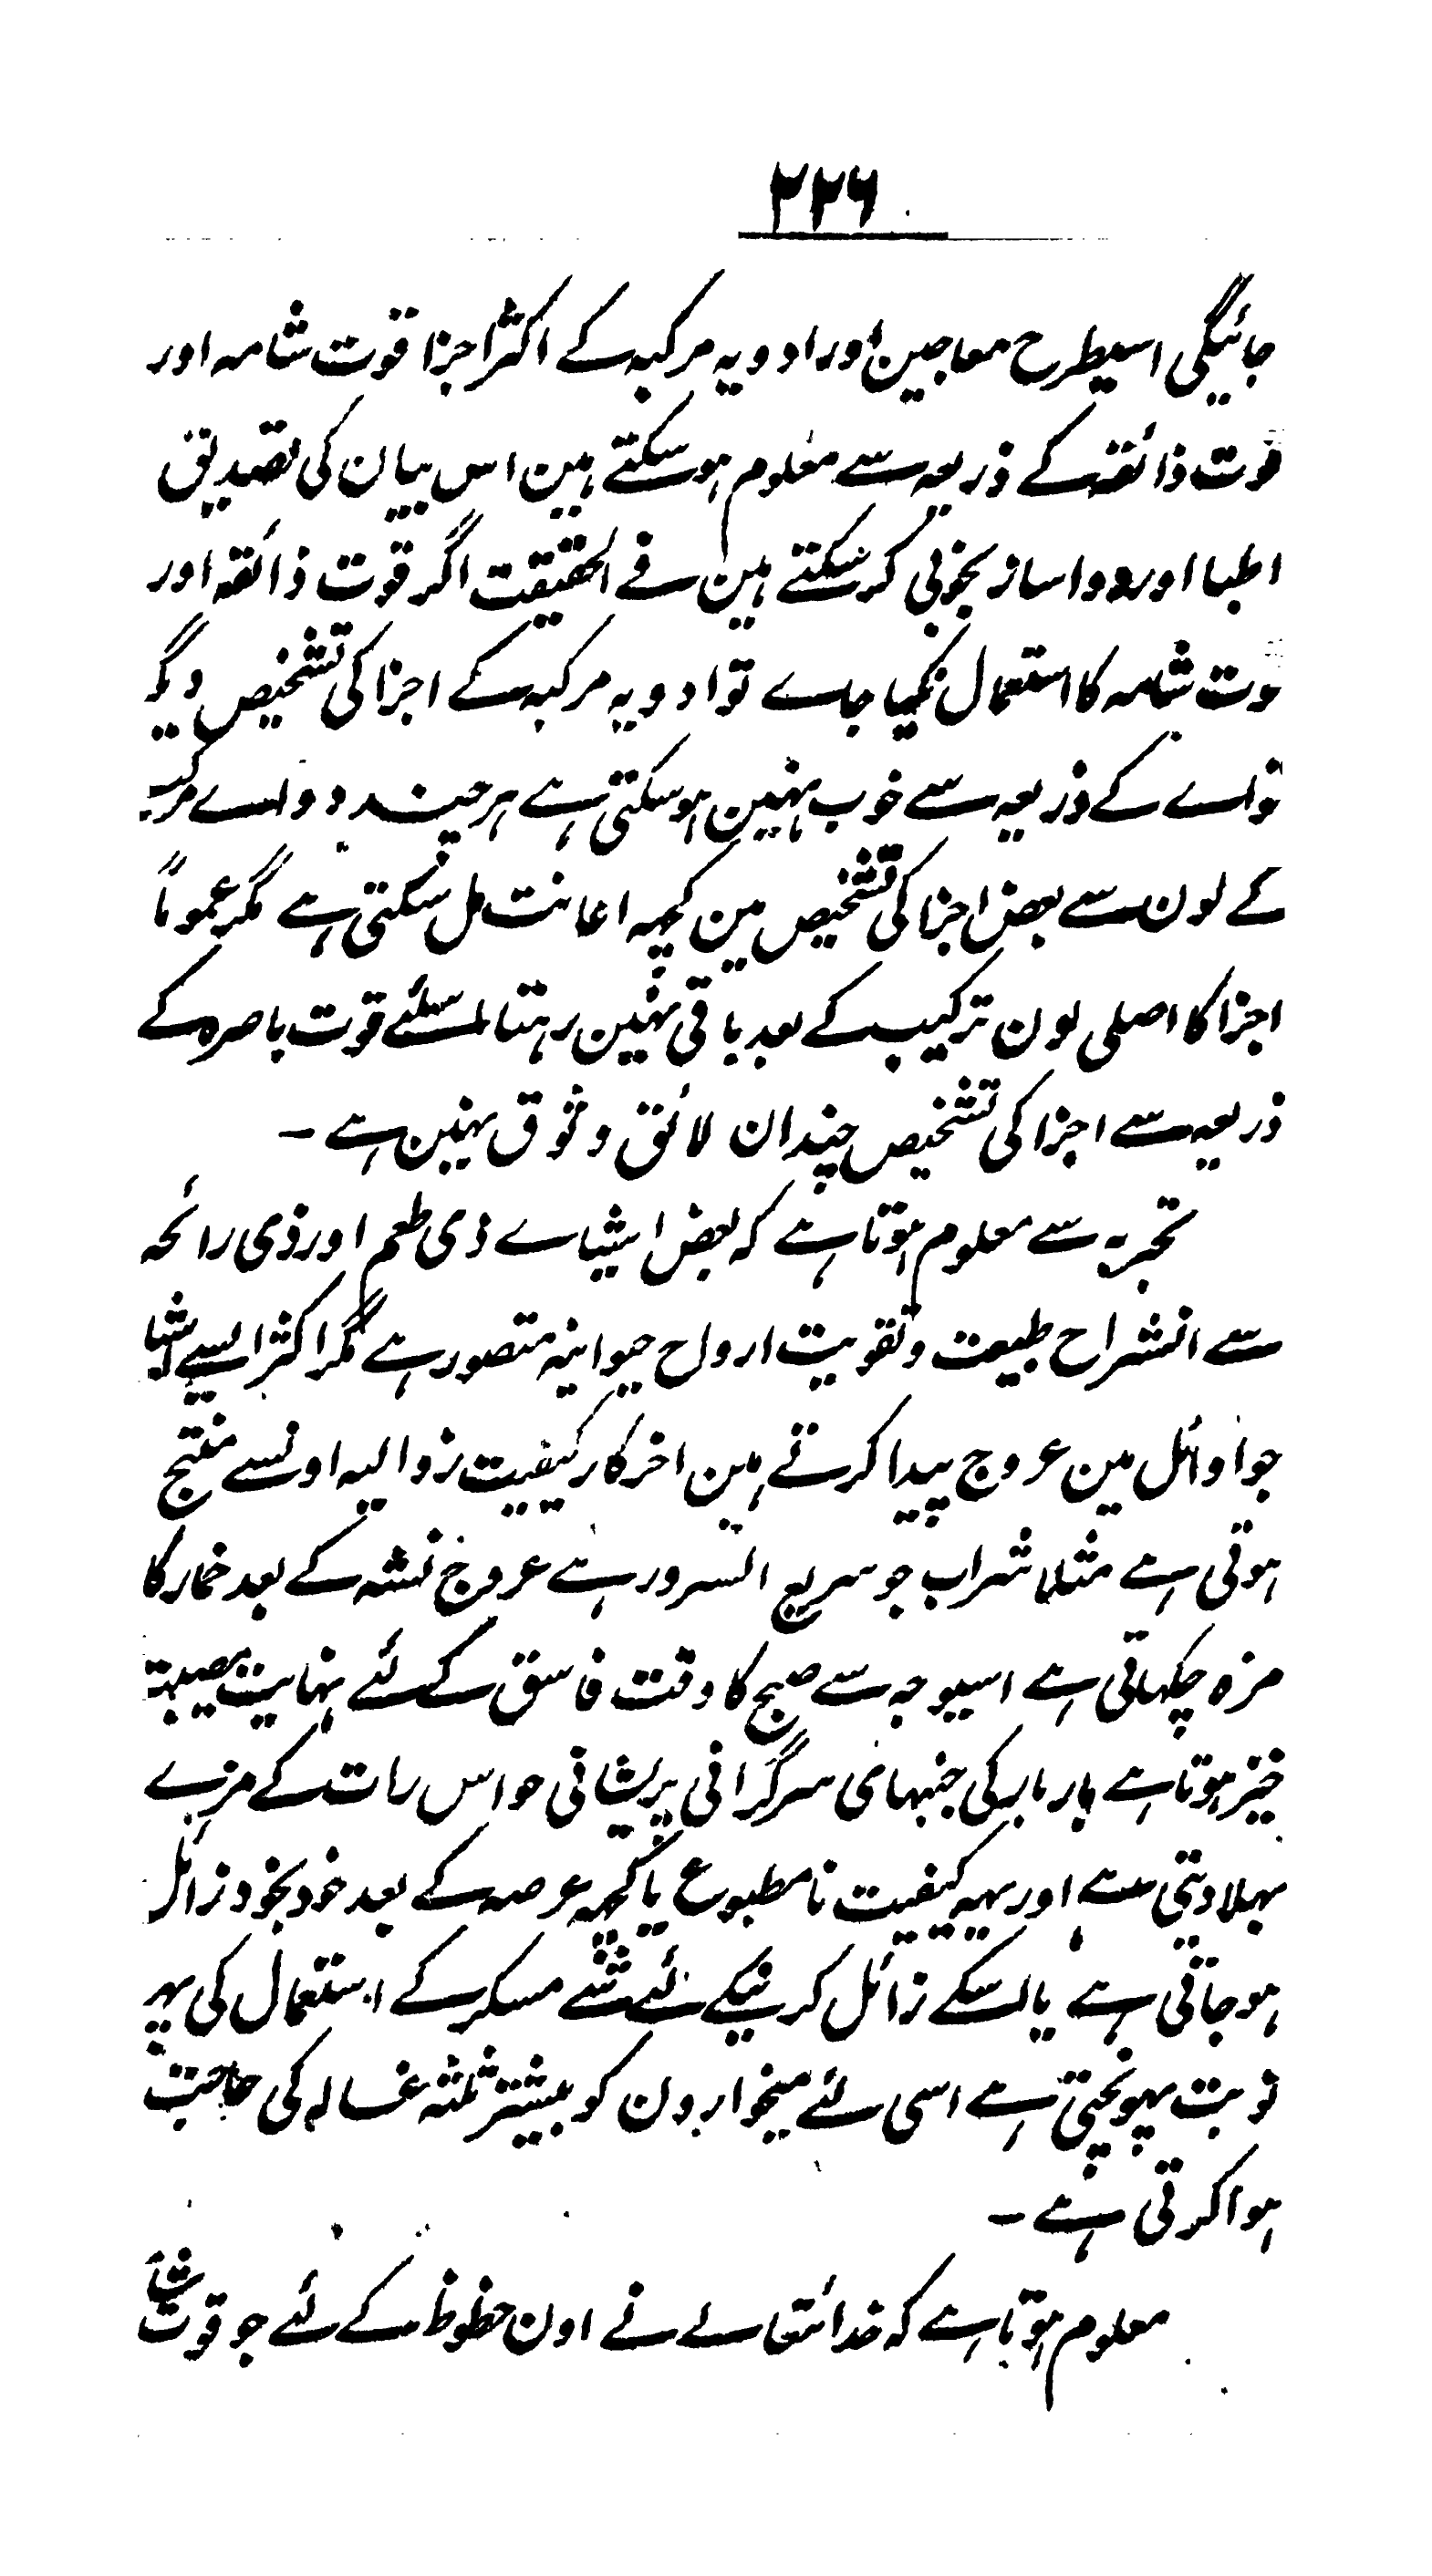 ۲۲۶
جائیگی اسیطرح معاجین اور ادویہ مرکبہ کے اکثر اجزا قوت شامہ اور
قوت ذائقہ کے ذریعہ سے معلوم ہو سکتے ہین اس بیان کی تصدیق
اطبا اور دواساز بخوبی کر سکتے ہین فے الحقیقت اگر قوت ذائقہ اور
قوت شامہ کا استعمال نکیا جاے تو ادویہ مرکبہ کے اجزا کی تشخیص دیگر
قواے کے ذریعہ سے خوب نہین ہو سکتی ہے ہر چند دواے مرکب
کے لون سے بعض اجزا کی تشخیص مین کچہہ اعانت مل سکتی ہے مگر عموماً
اجزا کا اصلی لون ترکیب کے بعد باقی نہین رہتا اسلئے قوت باصرہ کے
ذریعہ سے اجزا کی تشخیص چندان لائق وثوق نہین ہے ۔
تجربہ سے معلوم ہوتا ہے کہ بعض اشیاے ذی طعم اور ذی رائحہ
سے انشراح طبیعت و تقویت ارواح حیوانیہ متصور ہے مگر اکثر ایسے اشیا
جو اوائل مین عروج پیدا کرتے ہین اخر کار کیفیت زوالیہ اونسے منتج
ہوتی ہے مثلاً شراب جو سریع السرور ہے عروج نشہ کے بعد خمار کا
مزہ چکہاتی ہے اسیوجہ سے صبح کا وقت فاسق کے لئے نہایت مصیبت
خیز ہوتا ہے بار بار کی جنبہای سرگرانی پریشانی حواس رات کے مزے
بہلا دیتی ہے اور یہہ کیفیت نامطبوع یا کچہہ عرصہ کے بعد خود بخود زائل
ہو جاتی ہے یا اسکے زائل کرنیکے لئے شے مسکر کے استعمال کی پہر
نوبت پہونچتی ہے اسی لئے میخوارون کو بیشتر ثلثہ غسالہ کی حاجت
ہوا کرتی ہے ۔
معلوم ہوتا ہے کہ خدائتعالے نے اون حظوظ کے لئے جو قوت شامہ